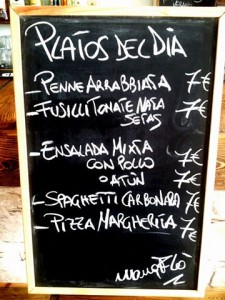 PLATOS DEL DIA
- PENNE ARRABBIATA 7€
- FUSILLI TONATE NATA 7€
SETAS
- ENSALADA MIXTA
CON POLLO 7€
O ATÚN 7€
- SPAGHETTI CARBONARA 7€
- PIZZA MARGHERITA 7€